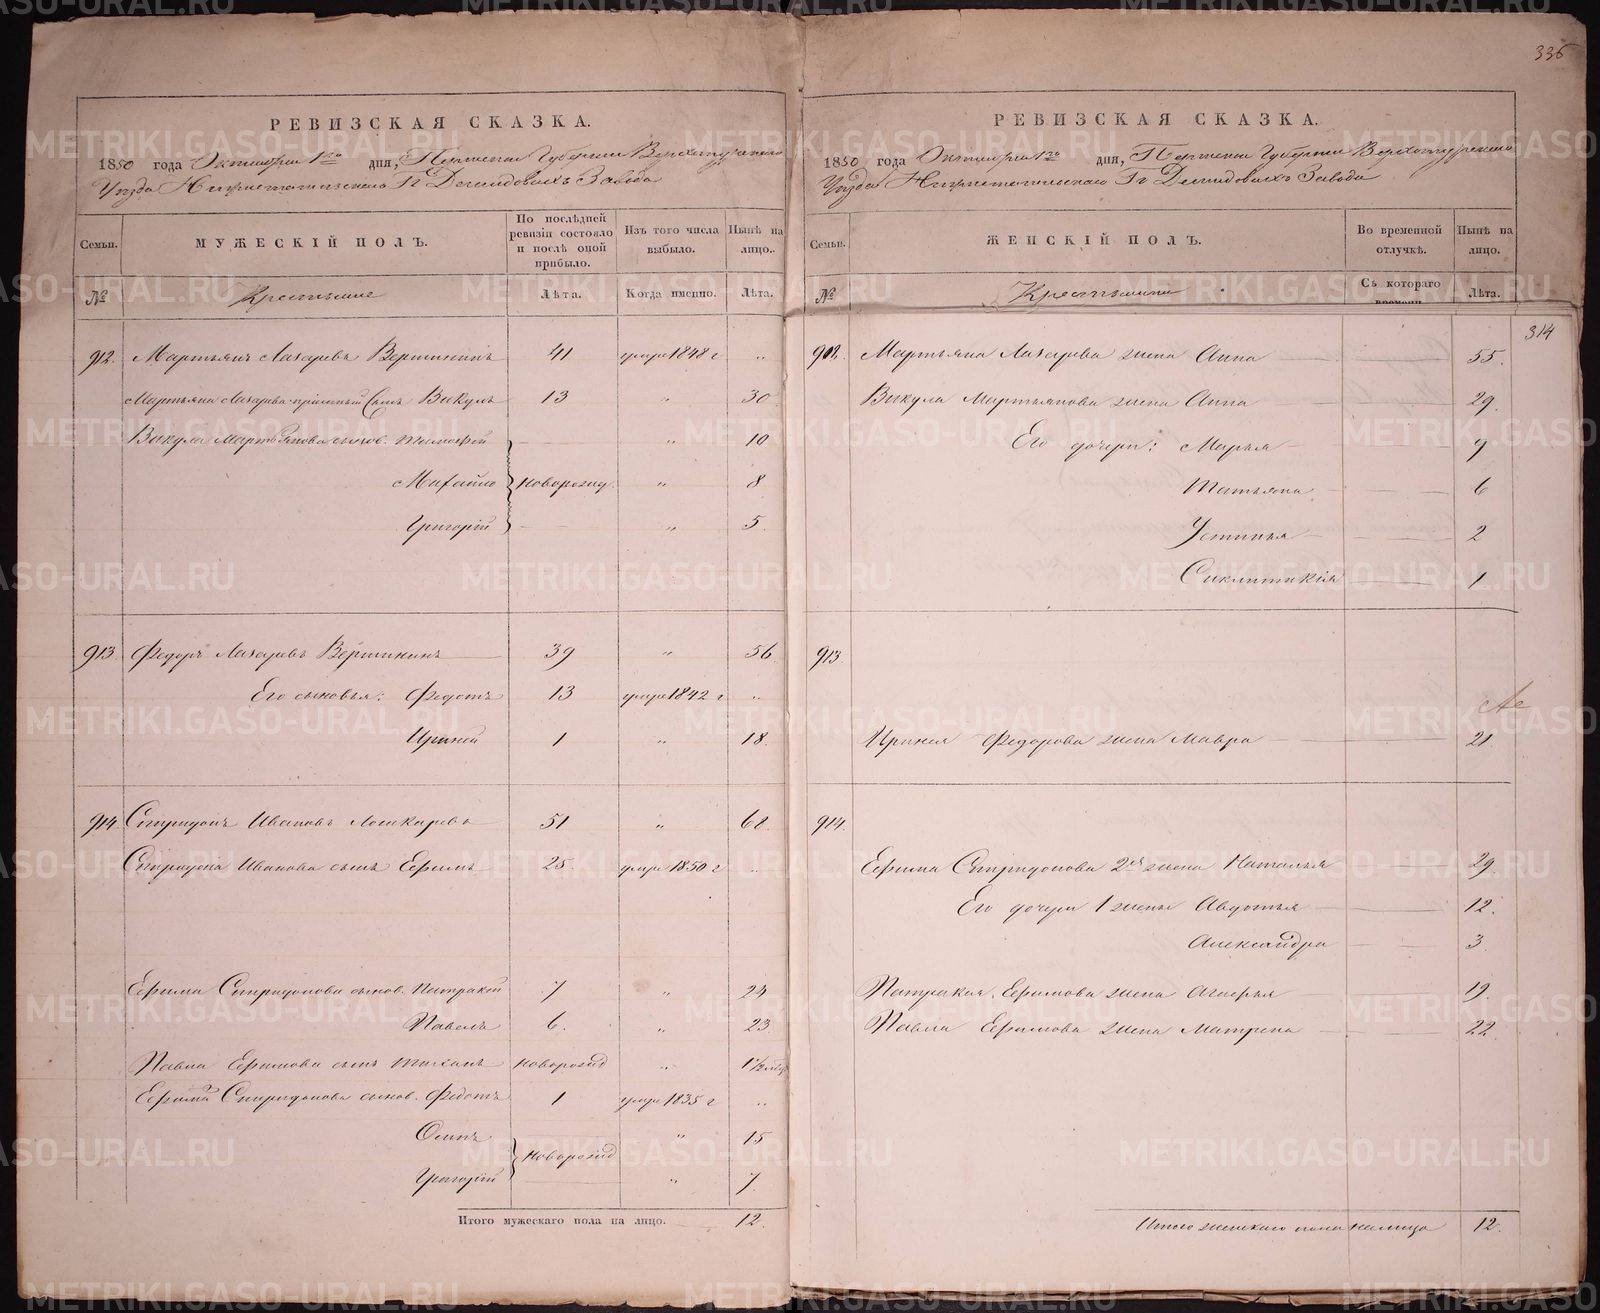 336
РЕВИЗСКАЯ СКАЗКА.
1850 года Октября 1го дня, Пермской Губернии Верхотурскаго
Уезда Нижнетагильскаго Гг Демидовыхъ Завода
Семьи. МУЖЕСКІЙ ПОЛЪ. По последней ревизіи состояло и после оной прибыло. Изъ того числа выбыло. Ныне на лицо.
№ Крестьяне Лѣта. Когда именно. Лѣта.
912. Мартьянъ Лазаревъ Вершининъ 41 умре 1848 г „
Мартьяна Лазарева пріемный Сынъ Викулъ 13 „ 30
Викула Мартьянова сынов. Тимофей „ 10
Михайло новорожд. „ 8
Григорій „ 5
913. Федоръ Лазаревъ Вершининъ 39 „ 56
Его сыновья: Федотъ 13 умре 1842 г „
Ириней 1 „ 18.
914. Спиридонъ Ивановъ Лошкаревъ 51 „ 68.
Спиридона Иванова сынъ Ефимъ 25. умре 1850 г „
Ефима Спиридонова сынов. Патракей 7 „ 24
Павелъ 6. „ 23
Павла Ефимова сынъ Тихонъ новорожд „ 1/2
Ефима Спиридонова сынов. Федотъ 1 умре 1835 г „
Осипъ новорожд „ 15
Григорій „ 7.
Итого мужескаго пола на лицо. 12.
РЕВИЗСКАЯ СКАЗКА.
1850 года Октября 1го дня, Пермской Губернии Верхотурскаго
Уезда Нижнетагильскаго Гг Демидовыхъ Завода
Семьи. ЖЕНСКІЙ ПОЛЪ. Во временной отлучкѣ. Ныне на лицо.
№ Крестьянки Съ котораго времени Лѣта.
314
912. Мартьяна Лазарева жена Анна 55.
Викула Мартьянова жена Анна 29.
Его дочери: Марья 9
Татьяна 6
Устинья 2
Сиклитикія 1
913.
Иринея Федорова жена Мавра 21
914.
Ефима Спиридонова 2ая жена Наталья 29.
Его дочери 1 жены Авдотья 12.
Александра 3.
Патракея Ефимова жена Агафья 19.
Павла Ефимова жена Матрена 22
Итого женскаго пола на лицо 12.
METRIKI.GASO-URAL.RU